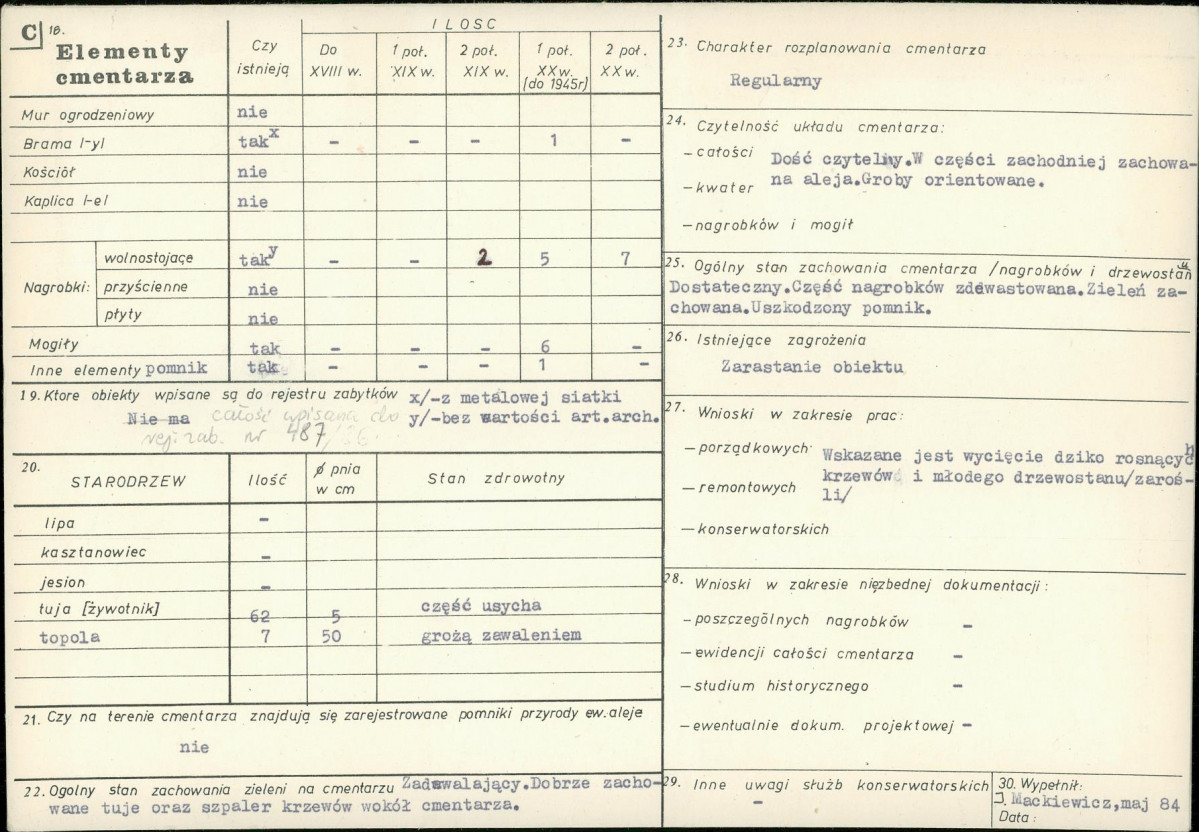 C 18.
Elementy cmentarza
Czy istnieją
ILOSC
Do XVIII w.
1 poł. XIX w.
2 poł. XIX w.
1 poł. XX w. (do 1945r)
2 poł. XX w.
Mur ogrodzeniowy nie
Brama l-yl takx - - - 1 -
Kościół nie
Kaplica l-el nie
Nagrobki: wolnostojące taky - - 2 5 7
przyścienne nie
płyty nie
Mogiły tak - - - 6 -
Inne elementy pomnik tak - - - 1 -
19. Ktore obiekty wpisane są do rejestru zabytków x/-z metalowej siatki
Nie ma całość wpisana do y/-bez wartości art.arch.
rej. zab. nr 487/
20.
STARODRZEW Ilość ø pnia w cm Stan zdrowotny
lipa -
kasztanowiec -
jesion -
tuja [żywotnik] 62 5 część usycha
topola 7 50 grożą zawaleniem
21. Czy na terenie cmentarza znajdują się zarejestrowane pomniki przyrody ew. aleje
nie
22. Ogolny stan zachowania zieleni na cmentarzu Zadawalający.Dobrze zacho-
wane tuje oraz szpaler krzewów wokół cmentarza.
23. Charakter rozplanowania cmentarza
Regularny
24. Czytelność układu cmentarza:
- całości Dość czytelny.W części zachodniej zachowa-
- kwater na aleja.Groby orientowane.
- nagrobków i mogił
25. Ogólny stan zachowania cmentarza /nagrobków i drzewostanu
Dostateczny.Część nagrobków zdewastowana.Zieleń za-
chowana.Uszkodzony pomnik.
26. Istniejące zagrożenia
Zarastanie obiektu
27. Wnioski w zakresie prac:
- porządkowych Wskazane jest wycięcie dziko rosnących
krzewów i młodego drzewostanu/zaroś-
- remontowych li/
- konserwatorskich
28. Wnioski w zakresie nięzbednej dokumentacji:
- poszczególnych nagrobków -
- ewidencji całości cmentarza -
- studium historycznego -
- ewentualnie dokum. projektowej -
29. Inne uwagi służb konserwatorskich
-
30. Wypełnił:
J. Mackiewicz,maj 84
Data: